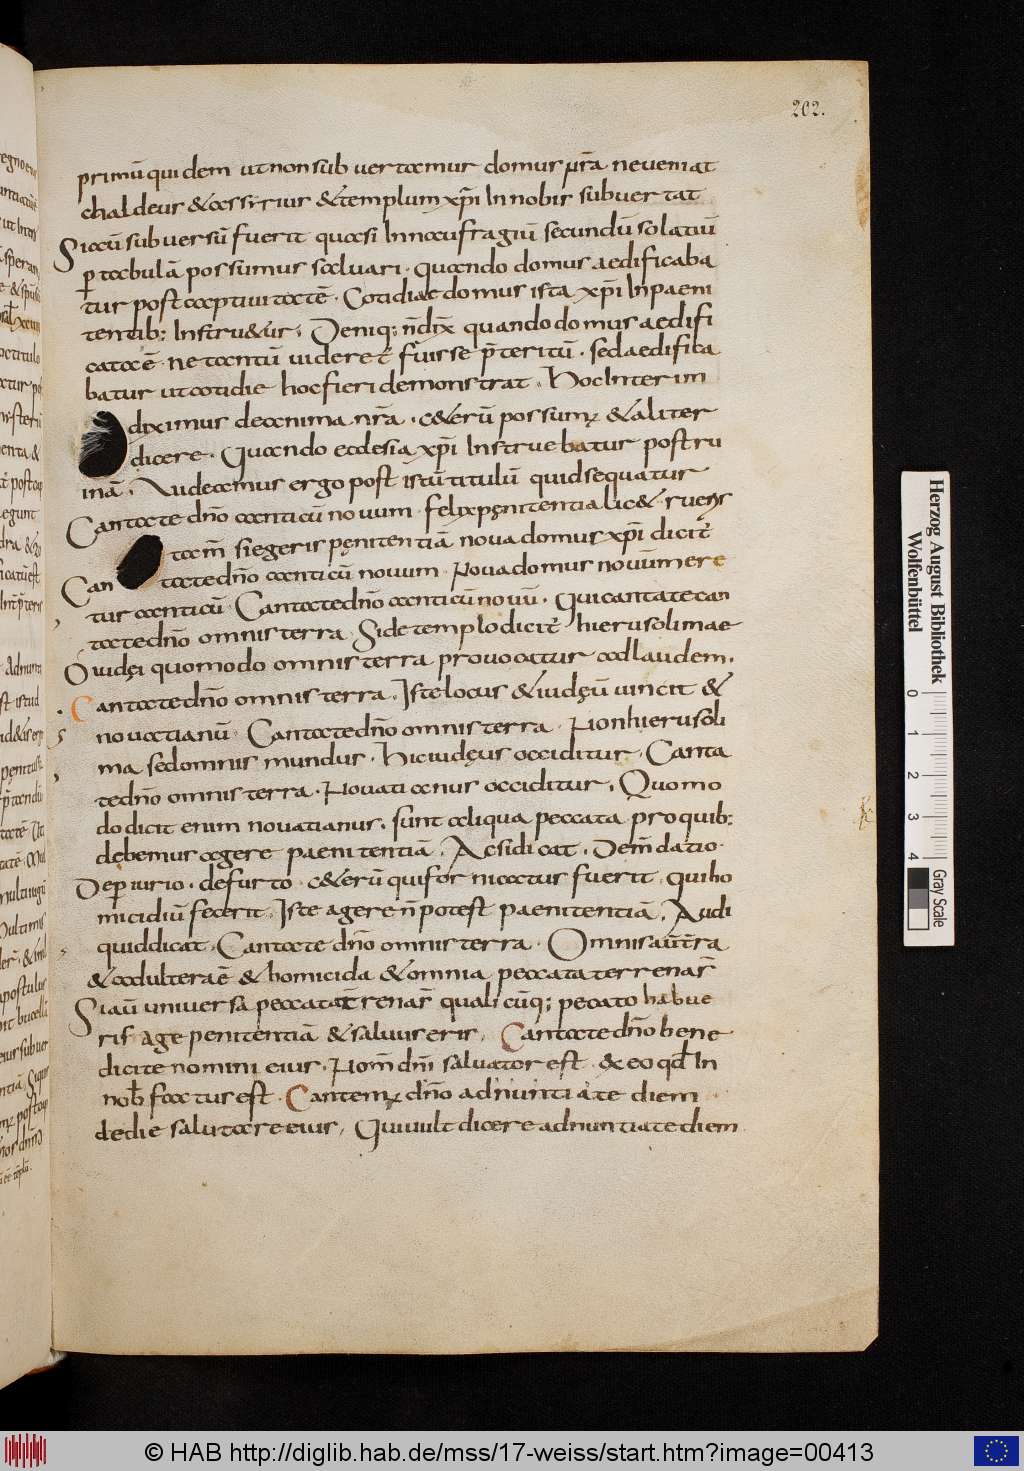 202.
primū quidem ut non subvertamur domus nr̄a ne veniat
chaldeus & assyrius & templum xp̄i In nobis subvertat
Si aū subversū fuerit quasi In naufragiū secundū solatiū
p tabulā possumus salvari. Quando domus aedificaba
tur post captivitatē. Cotidiae domus ista xp̄i In paeni
tentib; Instru&ur. Deniq; n̄ dix̄ quando domus aedifi
cata ē. ne tantū videret̄ fuisse p̄teritū. sed aedifica
batur ut cotidie hoc fieri demonstrat. Hoc Interim
diximus de anima nr̄a. c&erū possum; & aliter
dicere. Quando ecclesia xp̄i Instruebatur post ru
inā. Audeamus ergo post istū titulū quid sequatur
Cantate dn̄o canticū novum. felix pęnitentia lic& ruens
tam̄ si egeris pęnitentiā nova domus xp̄i dicit̄
Can tate dn̄o canticū novum. Nova domus novū mere
tur canticū. Cantate dn̄o canticū novū. Qui cantate can
tate dn̄o omnis terra. Si de templo dicit̄ hierusolimae
O iudęi quomodo omnis terra provocatur ad laudem.
Cantate dn̄o omnis terra. Iste locus & iudęū vincit &
novatianū. Cantate dn̄o omnis terra. Non hierusoli
ma sed omnis mundus. Hic iudęus occiditur. Canta
te dn̄o omnis terra. Novatianus occiditur. Quomo
do dicit enim novatianus. sunt aliqua peccata pro quib;
debemus agere paenitentiā. Ac si dicat. Dem̄ datio.
De piurio. de furto. c&erū qui fornicatur fuerit. qui ho
micidiū fecerit. Iste agere n̄ potest paenitentiā. Audi
quid dicat. Cantate dn̄o omnis terra. Omnis aūt̄ terra
& adultera ē & homicida & omnia peccata terrenar̄
Si aū universa peccata terrenar̄ qualicūq; peccato habue
ris age penitentiā & salvus eris. Cantate dn̄o bene
dicite nomini eius. Nom̄ dn̄i salvator est. & eo qd̄ In
nob̄ factus est. Cantem; dn̄o adnuntiate diem
de die salutare eius. Qui vult dicere adnuntiate diem
Herzog August Bibliothek
Wolfenbüttel
0 1 2 3 4
Gray Scale
© HAB http://diglib.hab.de/mss/17-weiss/start.htm?image=00413